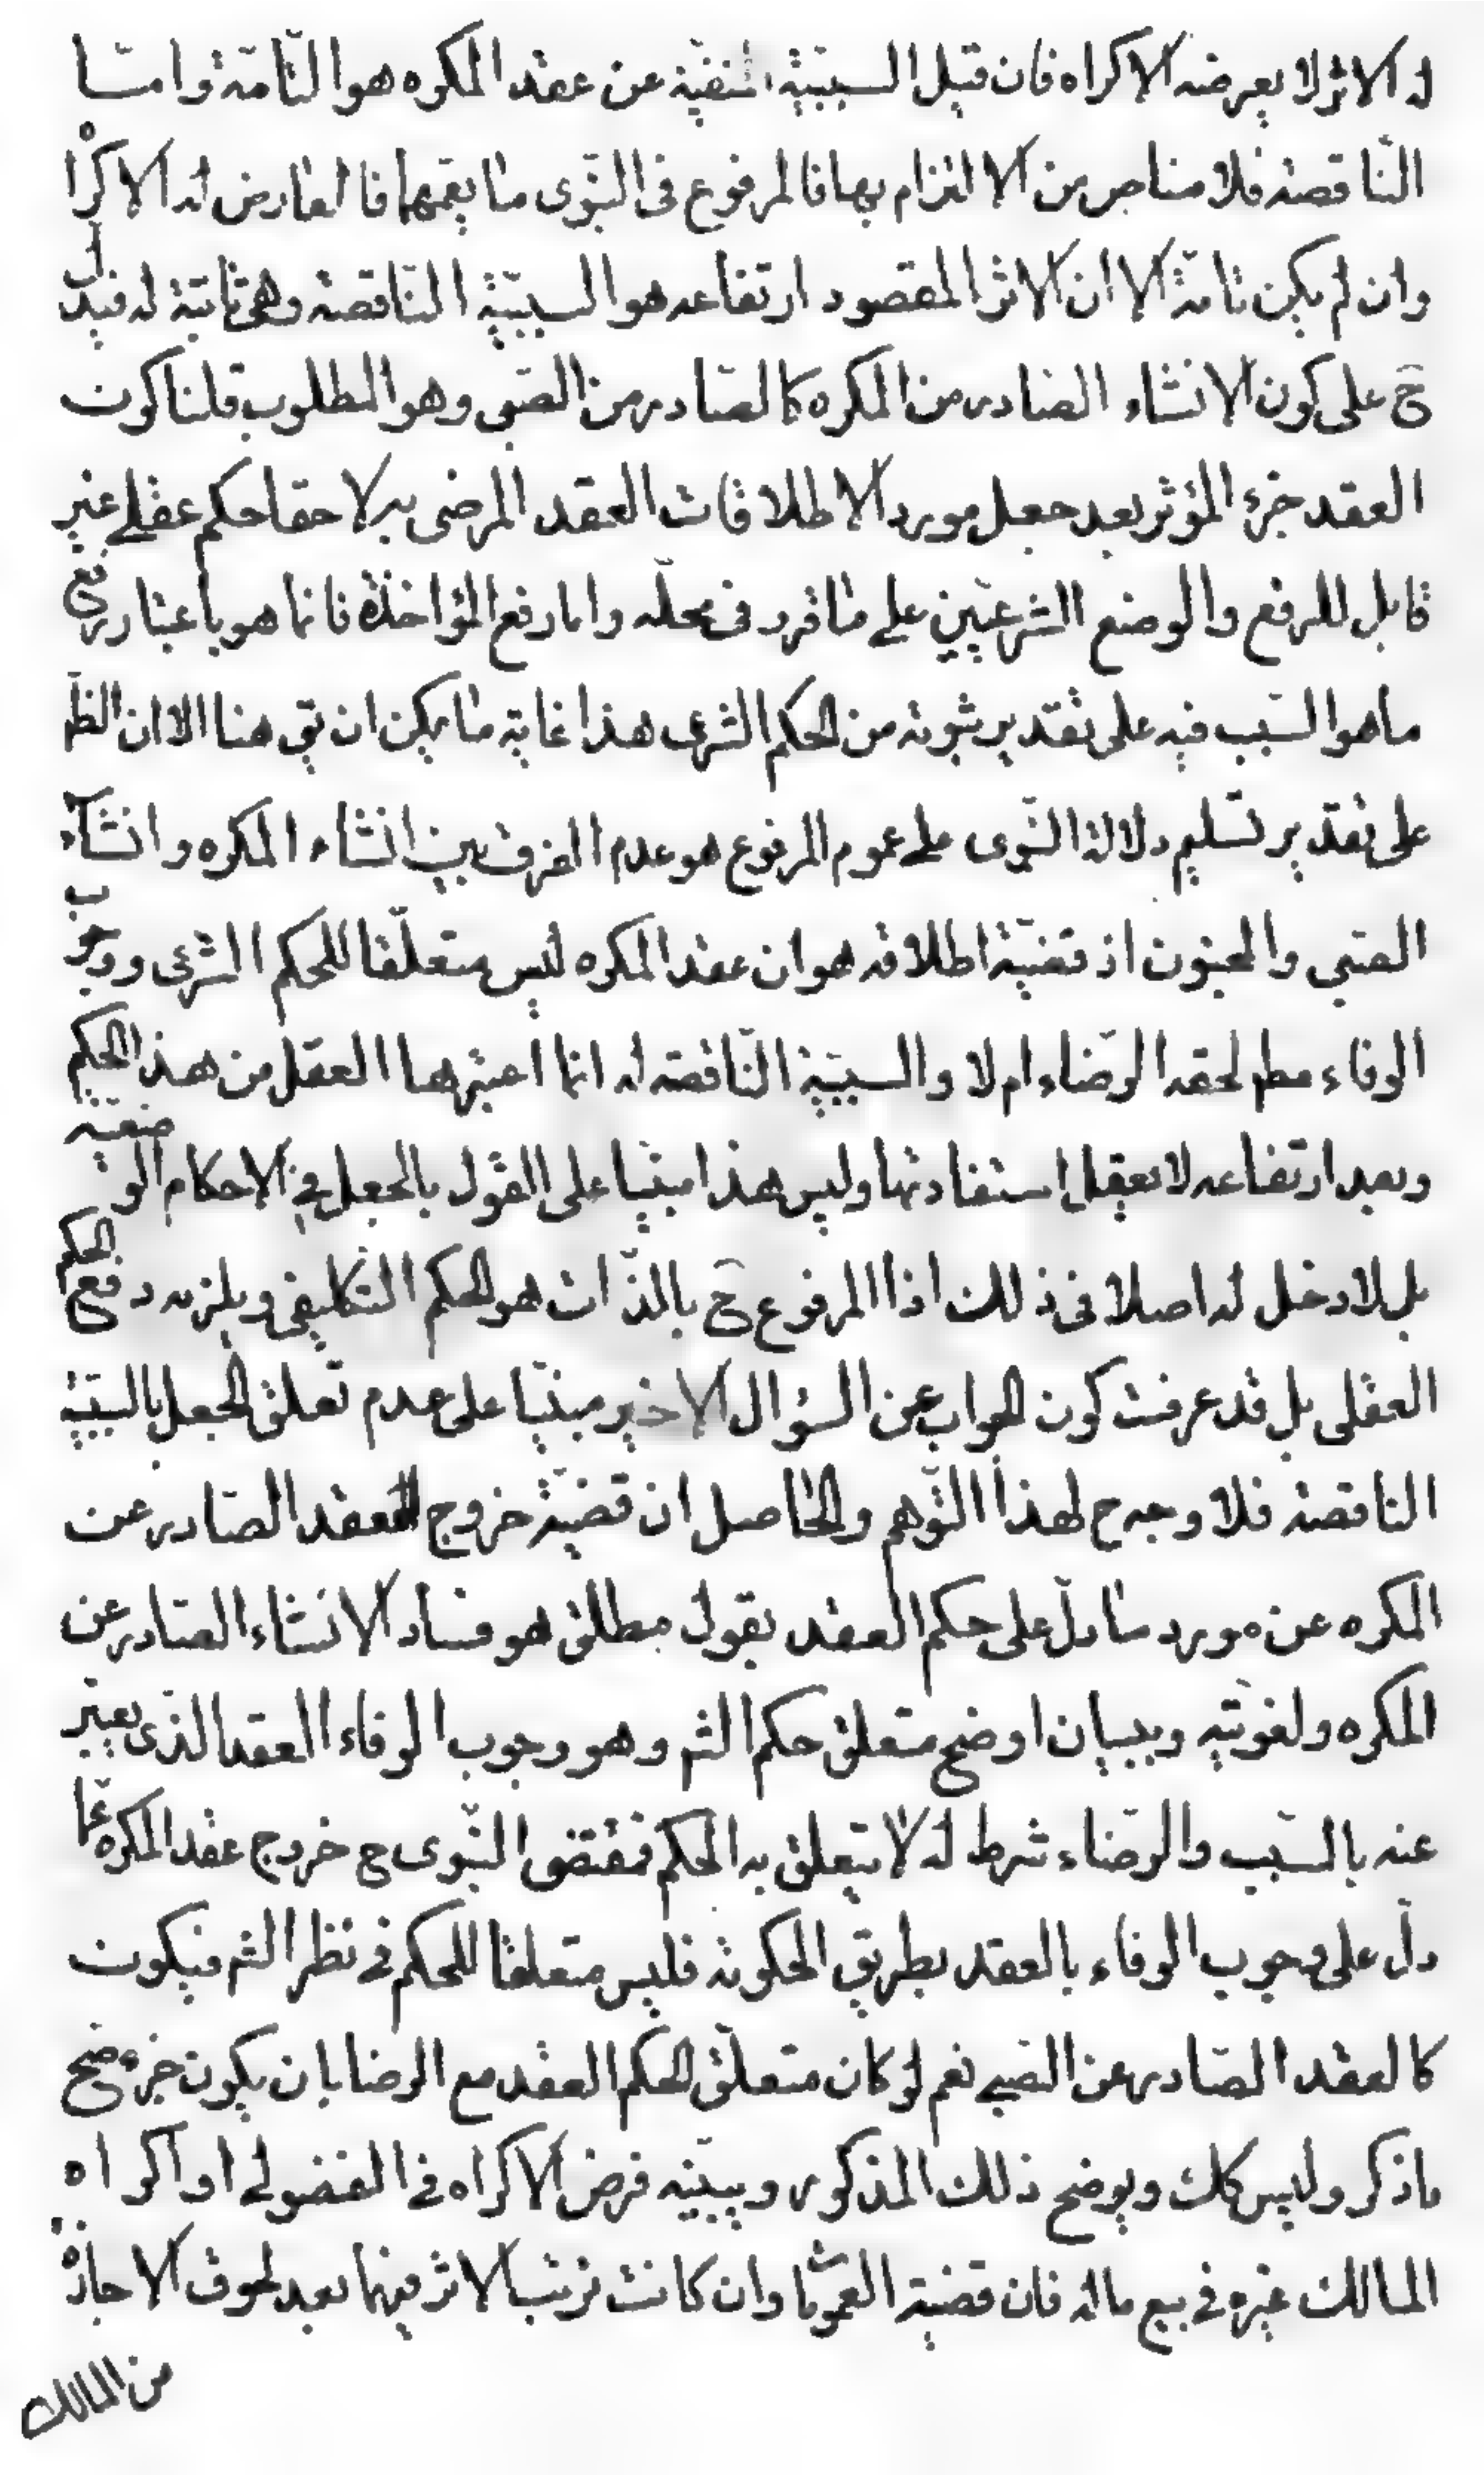 له الاثر لا يعرضه الاكراه فان قيل السببيّة المنفيّة عن عقد المكره هو التّامّة وامّا
النّاقصة فلا مناص من الالتزام بها فالمرفوع فى النّبوى ما يعمّهما فالعارض له الاكراه
وان لم يكن تامّة الا ان الاثر المقصود ارتفاعه هو السببيّة النّاقصة وهى ثابتة له فيدل
ح على كون الانشاء الصّادر من المكره كالصّادر من الصّبى وهو المطلوب قلنا كون
العقد جزء المؤثر بعد جعل مورد الاطلاقات العقد المرضى به لاحقا حكم عقلے غير
قابل للرفع والوضع الشرعيّين علے ما قرر فى محلّه واما رفع المؤاخذة فانما هو باعتبار رفع
ما هو السّبب فيه على تقدير ثبوته من الحكم الشرعى هذا غاية ما يمكن ان يق هنا الا ان الظ
على تقدير تسليم دلالة النّبوى علے عموم المرفوع هو عدم الفرق بين انشاء المكره وانشاء
الصّبي والمجنون اذ قضيّة اطلاقه هو ان عقد المكره ليس متعلّقا للحكم الشرعى ووجوب
الوفاء مطم لحقه الرّضاء ام لا والسببيّة النّاقصة له انما اعتبرها العقل من هذا الحكم
وبعد ارتفاعه لا يعقل استفادتها وليس هذا مبنيّا على القول بالجعل في الاحكام الوضعيّة
بل لا دخل له اصلا فى ذلك اذ المرفوع ح بالذّات هو الحكم التكليفى ويلزمه رفع الحكم
العقلى بل قد عرفت كون الجواب عن السؤال الاخير مبنيّا على عدم تعلق الجعل بالسّببيّة
الناقصة فلا وجه ح لهذا التّوهم والحاصل ان قضيّة خروج العقد الصّادر عن
المكره عن مورد ما دلّ على حكم العقد بقول مطلق هو فساد الانشاء الصّادر عن
المكره ولغويّته وببيان اوضح متعلق حكم الشم وهو وجوب الوفاء العقد الذى يعبّر
عنه بالسّبب والرّضاء شرط له لا يتعلق به الحكم فمقتضى النّبوى ح خروج عقد المكره عمّا
دلّ على وجوب الوفاء بالعقد بطريق الحكومة فليس متعلقا للحكم فى نظر الشم فيكون
كالعقد الصّادر عن الصّبے نعم لو كان متعلّق الحكم العقد مع الرضا بان يكون جزء صح
ما ذكر وليس كك ويوضح ذلك المذكور ويبيّنه فرض الاكراه فے الفضولے او اكراه
المالك غيره فے بيع ماله فان قضيّة العموماتّ وان كانت ترتب الاثر فيهما بعد لحوق الاجازة
من المالك